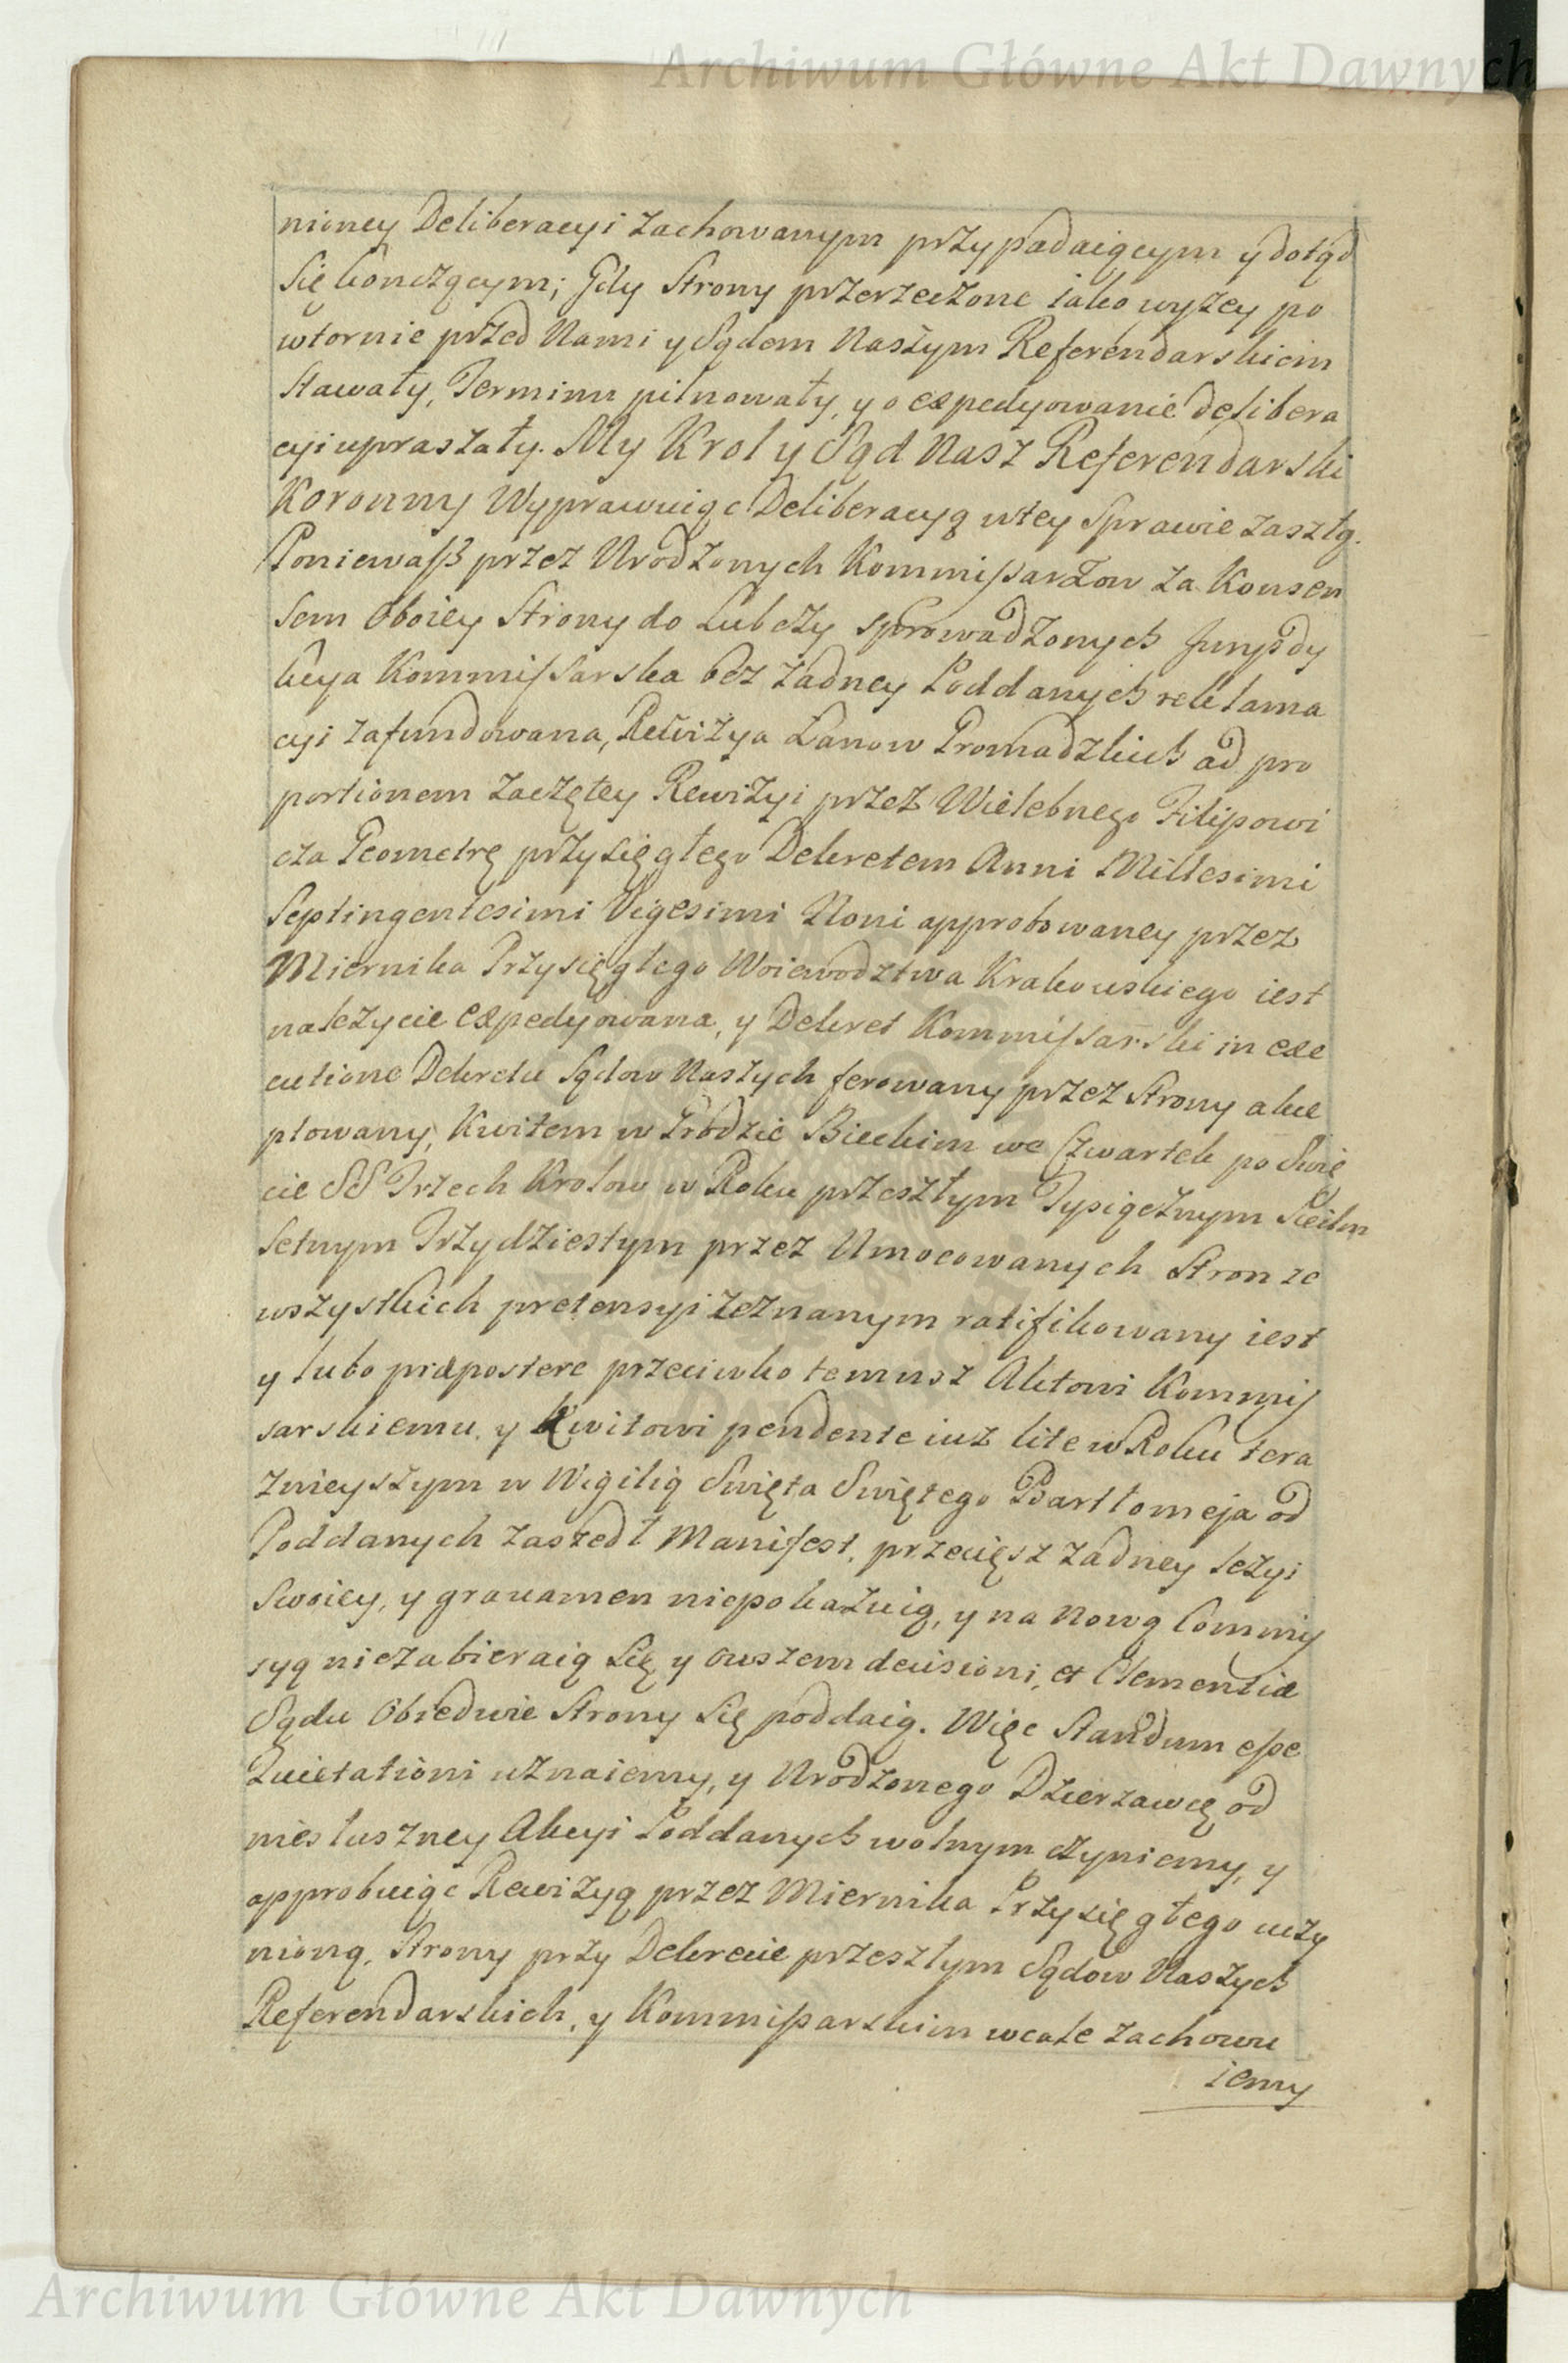 Archiwum Główne Akt Dawnych
nioney Deliberacyi zachowanym przypadaiącym y dotąd
się konczącym; Gdy Strony przerzeczone iako wyzey po
wtornie przed Nami y Sądem Naszym Referendarskiem
stawały, Terminu pilnowały, y o expedyowanie delibera
cyi upraszały. My Krol y Sąd Nasz Referendarski
Koronny Wyprawuiąc Deliberacyą wtey Sprawie zaszłą.
Ponieważ przez Urodzonych Kommissarzow za Konsen
sem oboiey Strony do Lubczy sprowadzonych Jurysdy
kcya Kommissarska bez żadney Poddanych reklama
cyi zafundowana, Rewizya Łanow Gromadzkich ad pro
portionem zaczętey Rewizyi przez Wielebnego Filipowi
cza Geometrę przysięgłego Dekretem Anni Millesimi
Septingentesimi Vigesimi Noni approbowaney przez
Miernika Przysięgłego Woiewodztwa Krakowskiego iest
należycie expedyowana, y Dekret Kommissarski in exe
cutione Dekretu Sądow Naszych ferowany przez Strony akce
ptowany, Kwitem w Grodzie Bieckim we Czwartek po Swię
cie SS Trzech Krolow w Roku przeszłym Tysiącznym Siedm
setnym Trzydziestym przez Umocowanych Stron ze
wszystkich pretensyi zeznanym ratifikowany iest
y lubo præpostere przeciwko temusz Aktowi Kommis
sarskiemu, y Kwitowi pendente iuz lite w Roku tera
znieyszym w Wigilią Swięta Swiętego Bartłomeja od
Poddanych zaszedł Manifest, przecięsz zadney lezyi
swoiey, y gravamen niepokazuią, y na Nową Commis
syą niezabieraią się y owszem decisioni, et Clementiæ
Sądu Obiedwie Strony się poddaią. Więc Standum esse
Quietationi uznaiemy, y Urodzonego Dzierzawcę od
niesłuszney Akcyi Poddanych wolnym czyniemy, y
approbuiąc Rewizyą przez Miernika Przysięgłego uczy
nioną, Strony przy Dekrecie przeszłym Sądow Naszych
Referendarskich, y Kommissarskim wcale zachowu
iemy
Archiwum Główne Akt Dawnych